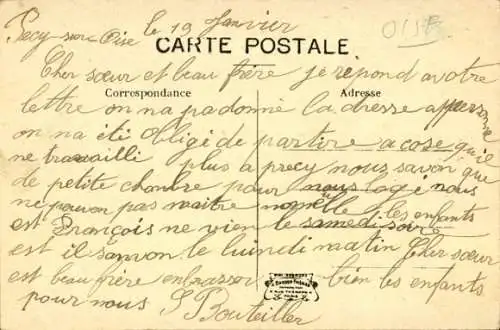 Pecy-sur-Oise le 19 Janvier
OISE
CARTE POSTALE
Cher sœur et beau frère je répond a votre
Correspondance
Adresse
lettre on na pa donné la dresse a personne
on na eti obligé de partire a cose qu'il
ne travailli plus a precy nous savon que
de petite chambre pour nous logé nous
ne pouvon pas maitre les enfants
est François ne vien le samedi soir
est il sanvon le luindi matin Cher sœur
est beau frère enbrasson bien les enfants
pour nous S Bouteiller